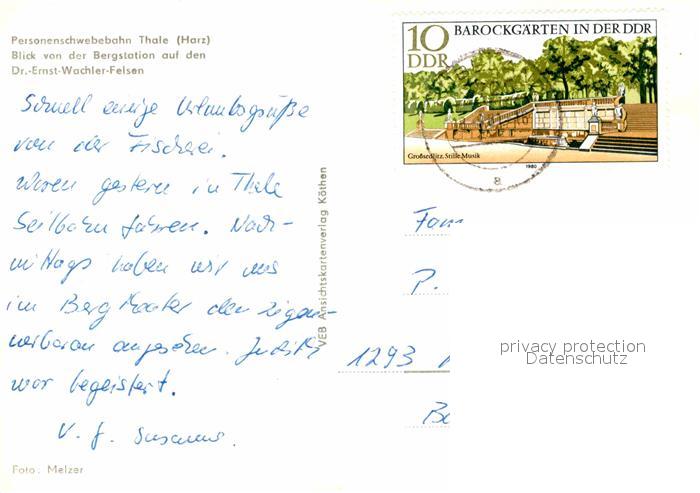 Personenschwebebahn Thale (Harz)
Blick von der Bergstation auf den
Dr.-Ernst-Wachler-Felsen
Schnell einige Urlaubsgrüße
von der Fischerei.
Waren gestern in Thale
Seilbahn fahren. Nach-
mittags haben wir uns
im Bergtheater den Zigeu-
nerbaron angesehen. Judith
war begeistert.
Foto: Melzer
VEB Ansichtskartenverlag Köthen
10 BAROCKGÄRTEN IN DER DDR
DDR
Großsedlitz, Stille Musik
1980
a
Fam
P.
1293
privacy protection
Datenschutz